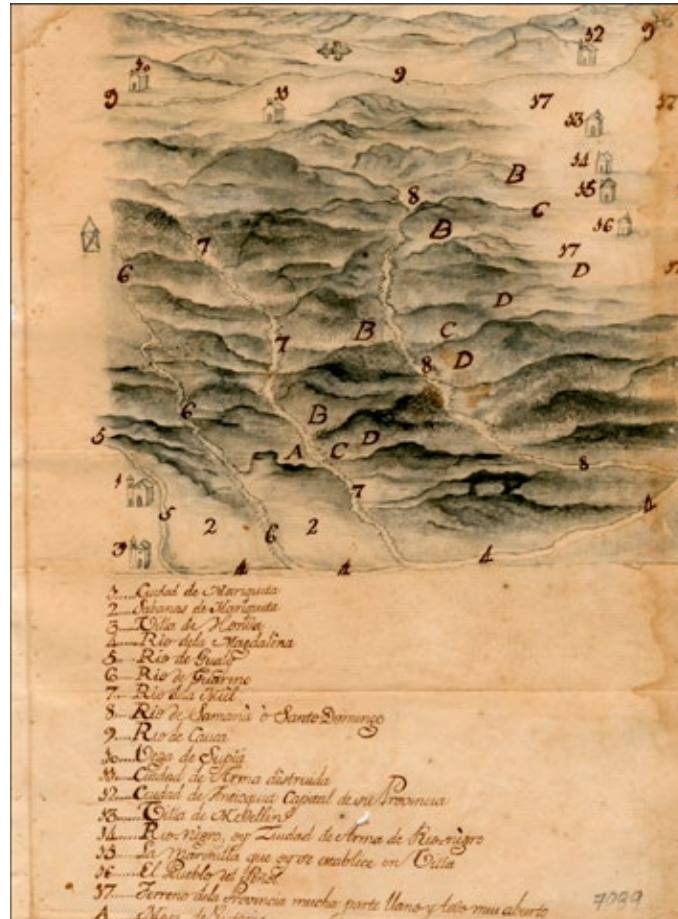 1 Ciudad de Mariquita
2 Sabanas de Mariquita
3 Villa de Honda
4 Rio dela Magdalena
5 Rio de Gualo
6 Rio de Guarino
7 Rio dela Miel
8 Rio de Samaná ò Santo Domingo
9 Rio de Cauca
10 Vega de Supia
11 Ciudad de Arma distruida
12 Ciudad de Antioqua Capital de su Provincia
13 Villa de Medellin
14 Rio Negro, oy Ziudad de Arma de Rio nègro
15 La Marinilla que oy se establece en Villa
16 El Pueblo del Peñol
17 Terreno dela Provincia mucha parte llano y todo mui abierto
A Mesa de
7029